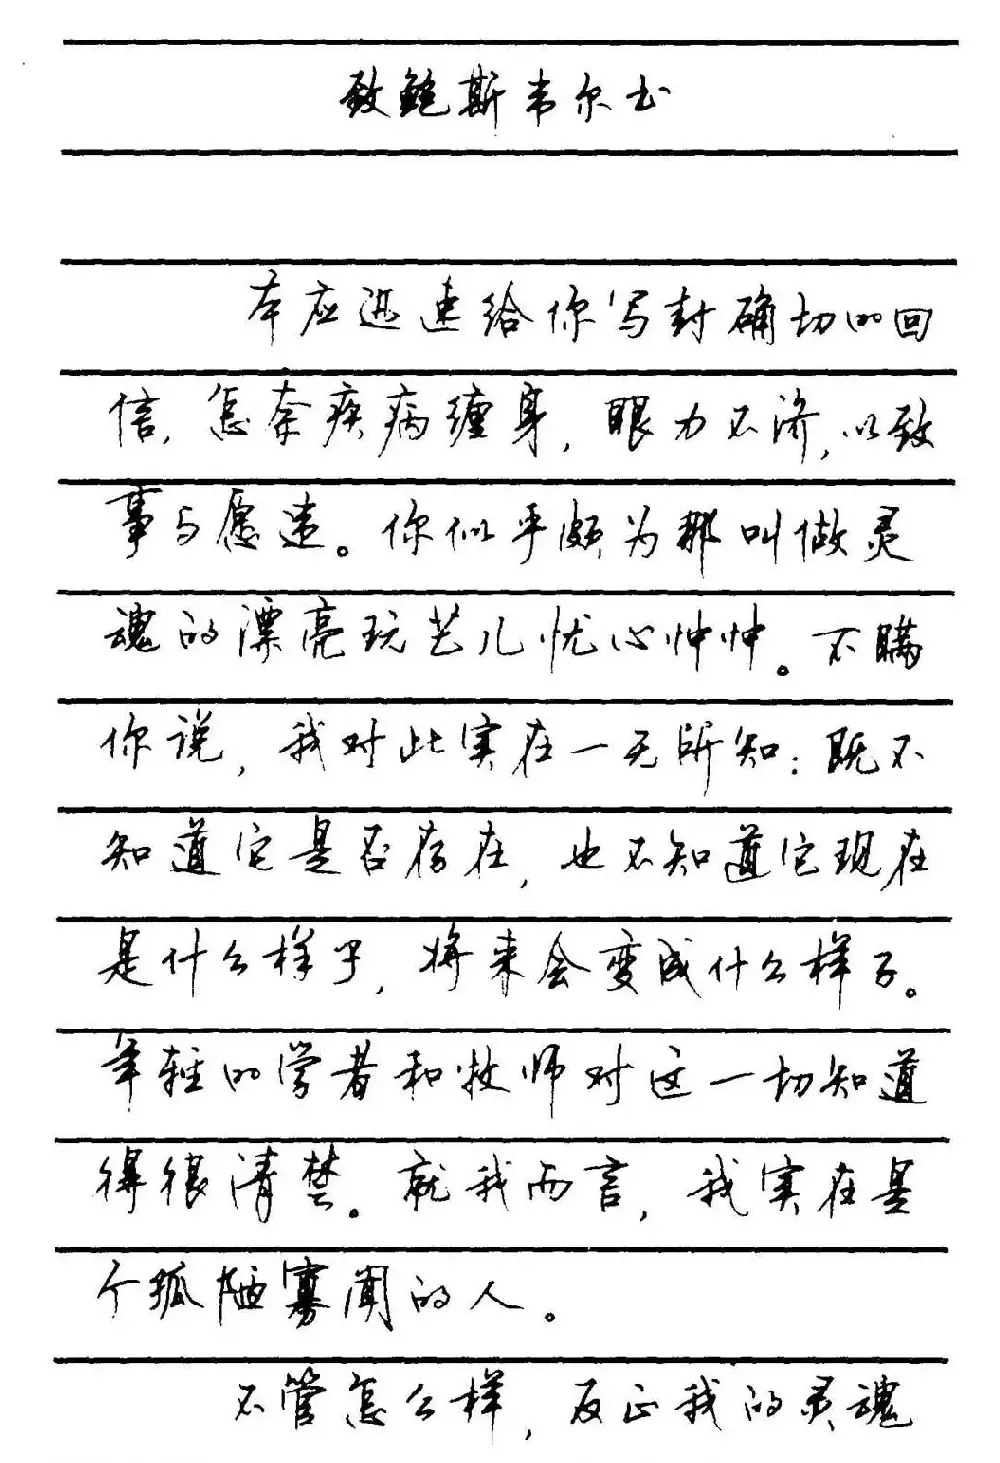 致鲍斯韦尔书
本应迅速给你写封确切的回
信,怎奈疾病缠身,眼力不济,以致
事与愿违。你似乎颇为那叫做灵
魂的漂亮玩艺儿忧心忡忡。不瞒
你说,我对此实在一无所知:既不
知道它是否存在,也不知道它现在
是什么样子,将来会变成什么样子。
年轻的学者和牧师对这一切知道
得很清楚。就我而言,我实在是
个孤陋寡闻的人。
不管怎么样,反正我的灵魂